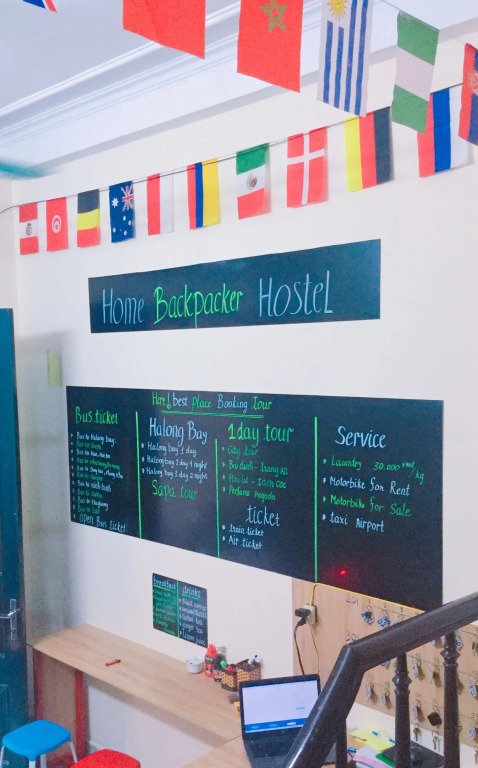 Home Backpacker Hostel
Here! best Place Booking Tour
Bus ticket
* Bus to Halong bay:
* Bus to
* Bus to
* Bus to
* Bus to
* Bus to
* Bus to ninh binh
* Bus to
* Bus to Hagiang
* Bus to
Open Bus ticket
Halong Bay
* Halong bay 1 day
* Halong bay 2 day 1 night
* Halong bay 3 day 2 night
Sapa tour
1 day tour
* City tour
* Bai dinh - Trang An
* Hoa Lu - Tam Coc
* Perfume pagoda
ticket
* train ticket
* Air ticket
Service
* Laundry 30.000 vnd/kg
* Motorbike for Rent
* Motorbike for Sale
* taxi Airport
breakfast
drinks
* Black coffee
* ginger tea